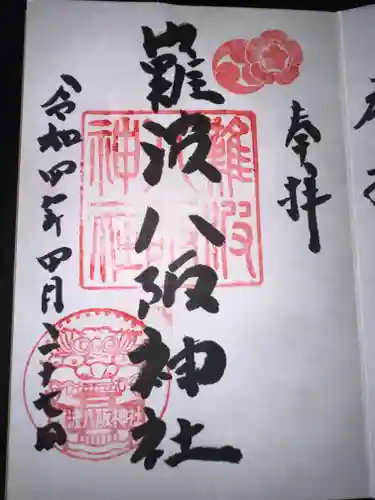 奉拝
難波八阪神社
令和四年四月二十七日
難波八阪神社
難波八阪神社